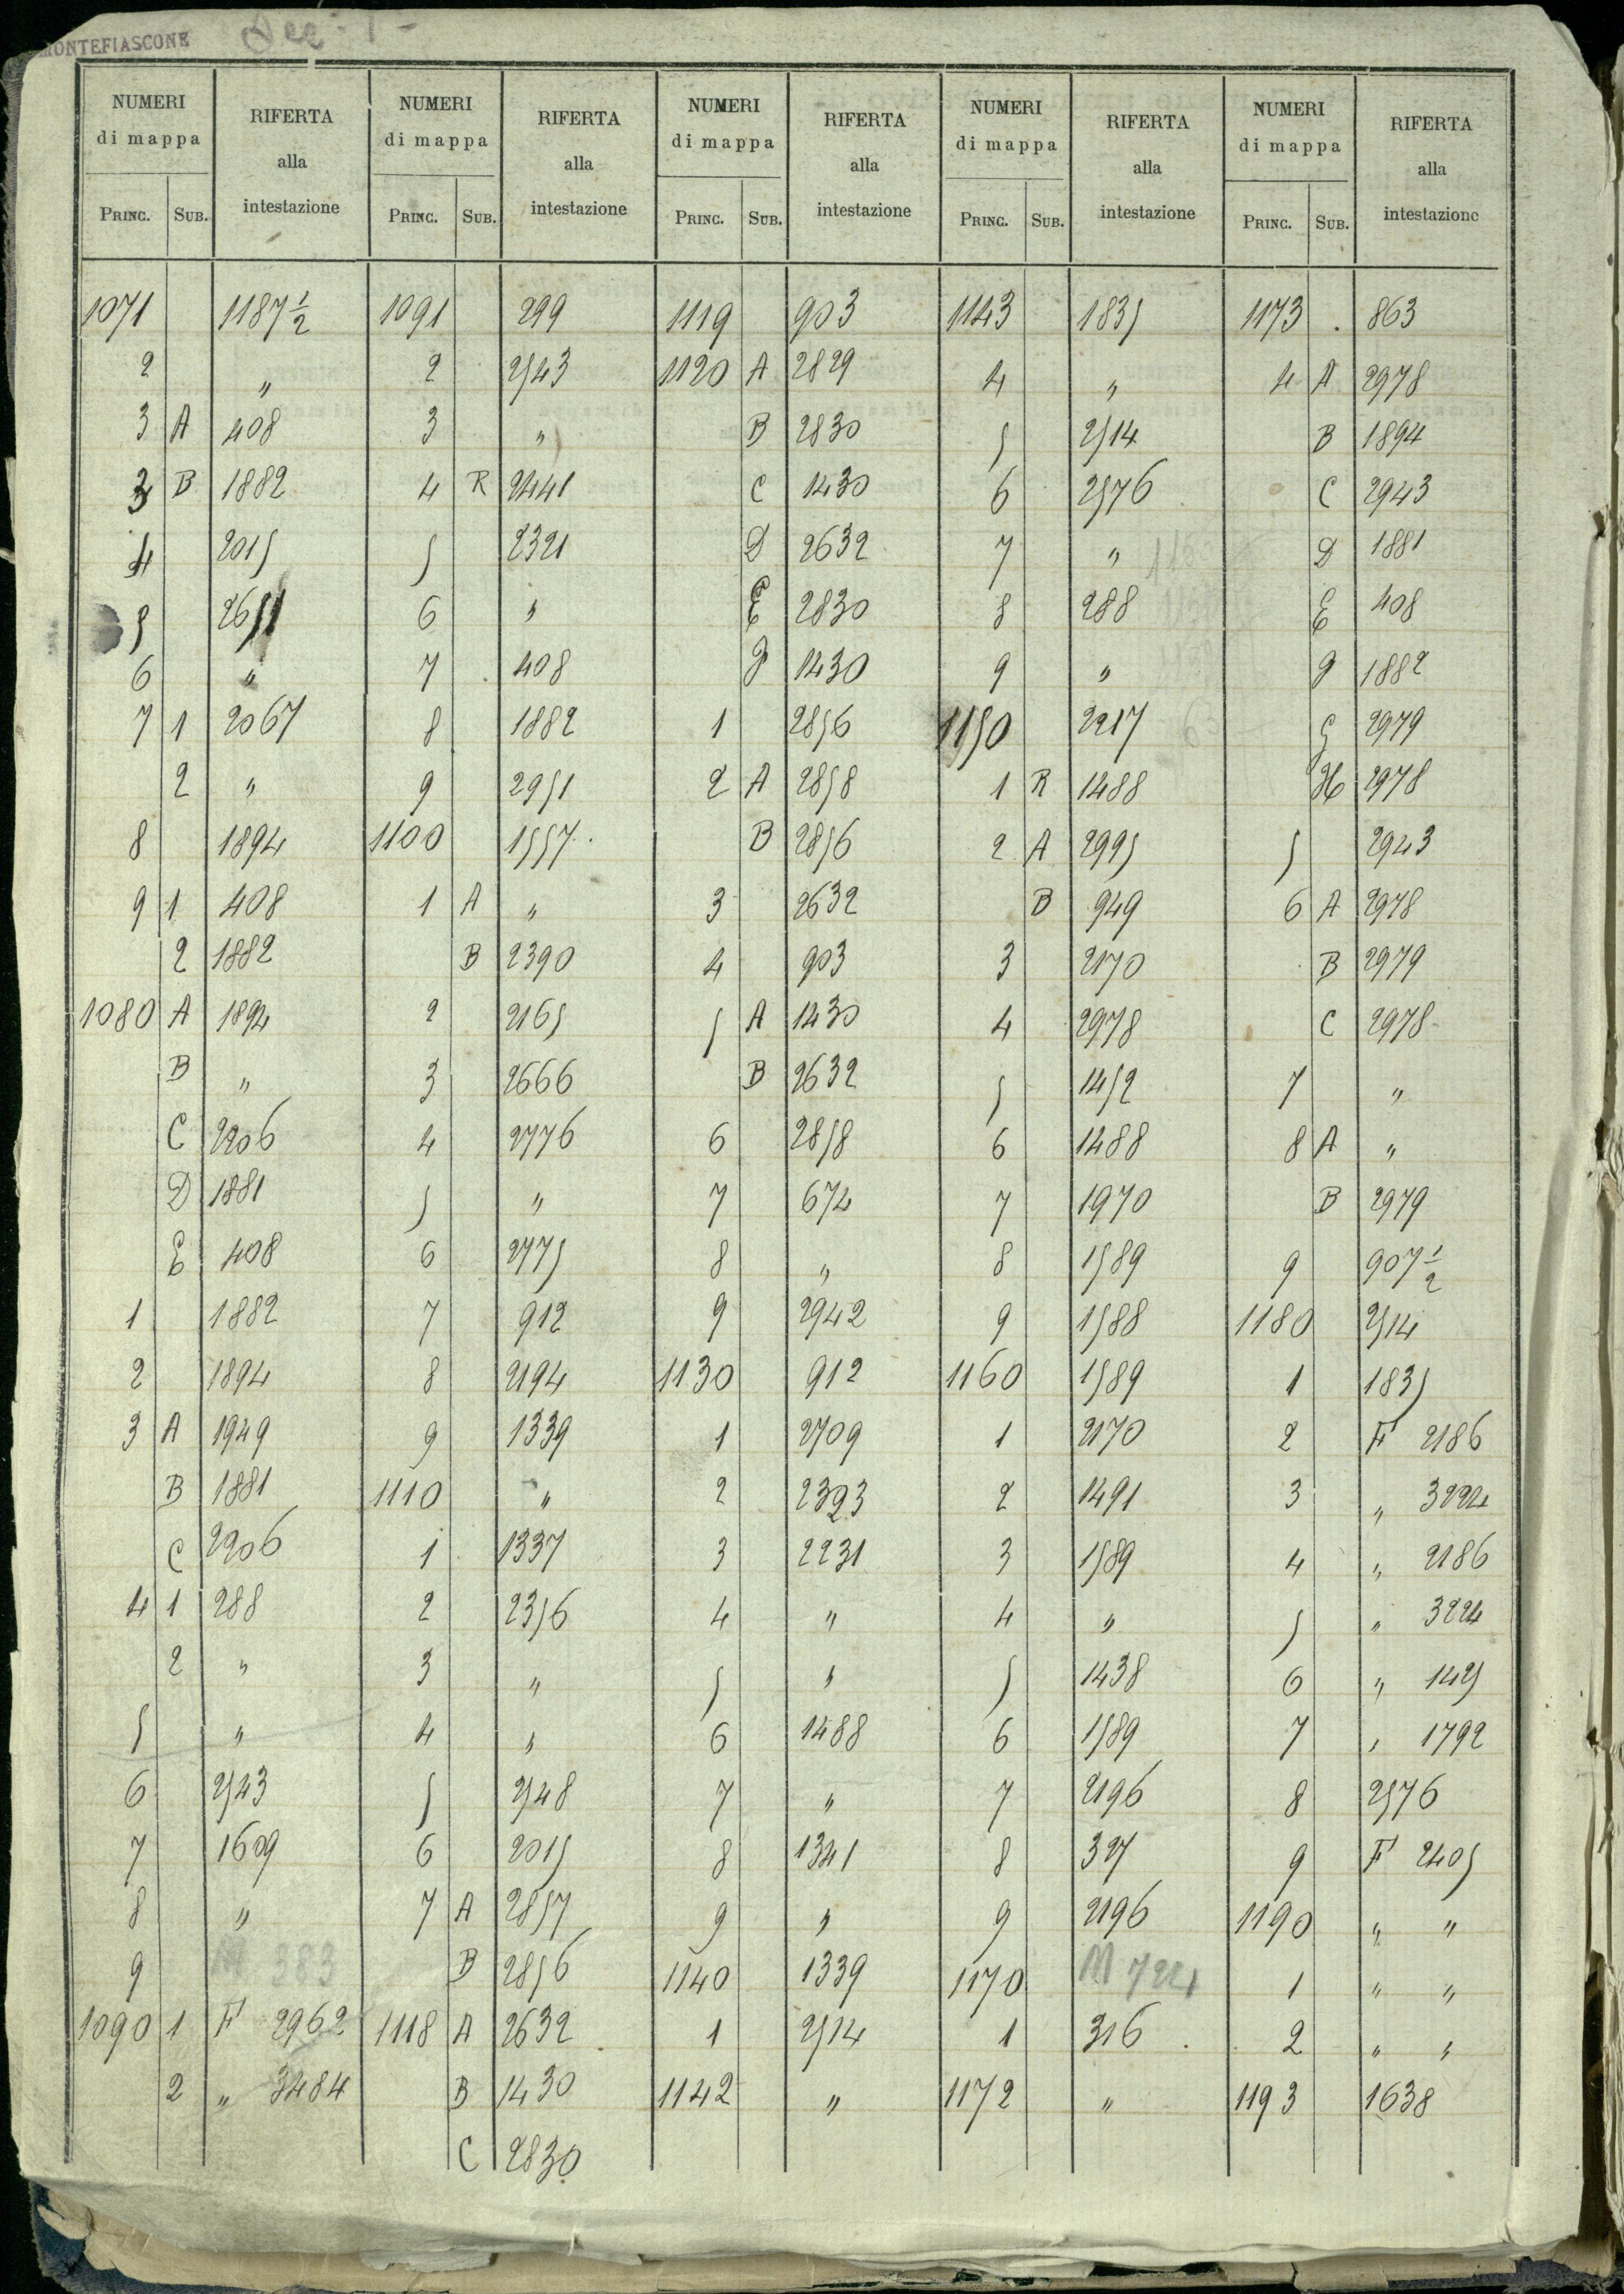 MONTEFIASCONE
NUMERI di mappa RIFERTA alla intestazione NUMERI di mappa RIFERTA alla intestazione NUMERI di mappa RIFERTA alla intestazione NUMERI di mappa RIFERTA alla intestazione NUMERI di mappa RIFERTA alla intestazione
PRINC. SUB. PRINC. SUB. PRINC. SUB. PRINC. SUB. PRINC. SUB.
1071 1187 1/2 1091 299 1119 903 1143 1835 1173 . 863
2 " 2 2543 1120 A 2829 4 " 4 A 2978
3 A 408 3 " B 2830 5 2514 B 1894
3 B 1882 4 R 2441 C 1430 6 2576 C 2943
4 2015 5 2321 D 2632 7 " D 1881
5 2651 6 " E 2830 8 288 E 408
6 " 7 408 F 1430 9 " F 1882
7 1 2067 8 1882 1 2856 1150 2217 G 2979
2 " 9 2951 2 A 2858 1 R 1488 H 2978
8 1894 1100 1557 B 2856 2 A 2995 5 2943
9 1 408 1 A " 3 2632 B 949 6 A 2978
2 1882 B 2390 4 903 3 2170 B 2979
1080 A 1894 2 2165 5 A 1430 4 2978 C 2978
B " 3 2666 B 2632 5 1452 7 "
C 2206 4 2776 6 2858 6 1488 8 A "
D 1881 5 " 7 674 7 1970 B 2979
E 408 6 2775 8 " 8 1589 9 907 1/2
1 1882 7 912 9 2942 9 1588 1180 2514
2 1894 8 2194 1130 912 1160 1589 1 1835
3 A 1949 9 1339 1 2709 1 2170 2 F 2186
B 1881 1110 " 2 2393 2 1491 3 " 3224
C 2206 1 1337 3 2231 3 1589 4 " 2186
4 1 288 2 2356 4 " 4 " 5 " 3224
2 " 3 " 5 " 5 1438 6 " 1425
5 " 4 " 6 1488 6 1589 7 " 1792
6 2543 5 2548 7 " 7 2196 8 2576
7 1609 6 2015 8 1341 8 327 9 F 2405
8 " 7 A 2857 9 " 9 2196 1190 " "
9 M 383 B 2856 1140 1339 1170 M 724 1 " "
1090 1 F 2962 1118 A 2632 1 2514 1 316 2 " "
2 " 3484 B 1430 1142 " 1172 " 1193 1638
C 2830